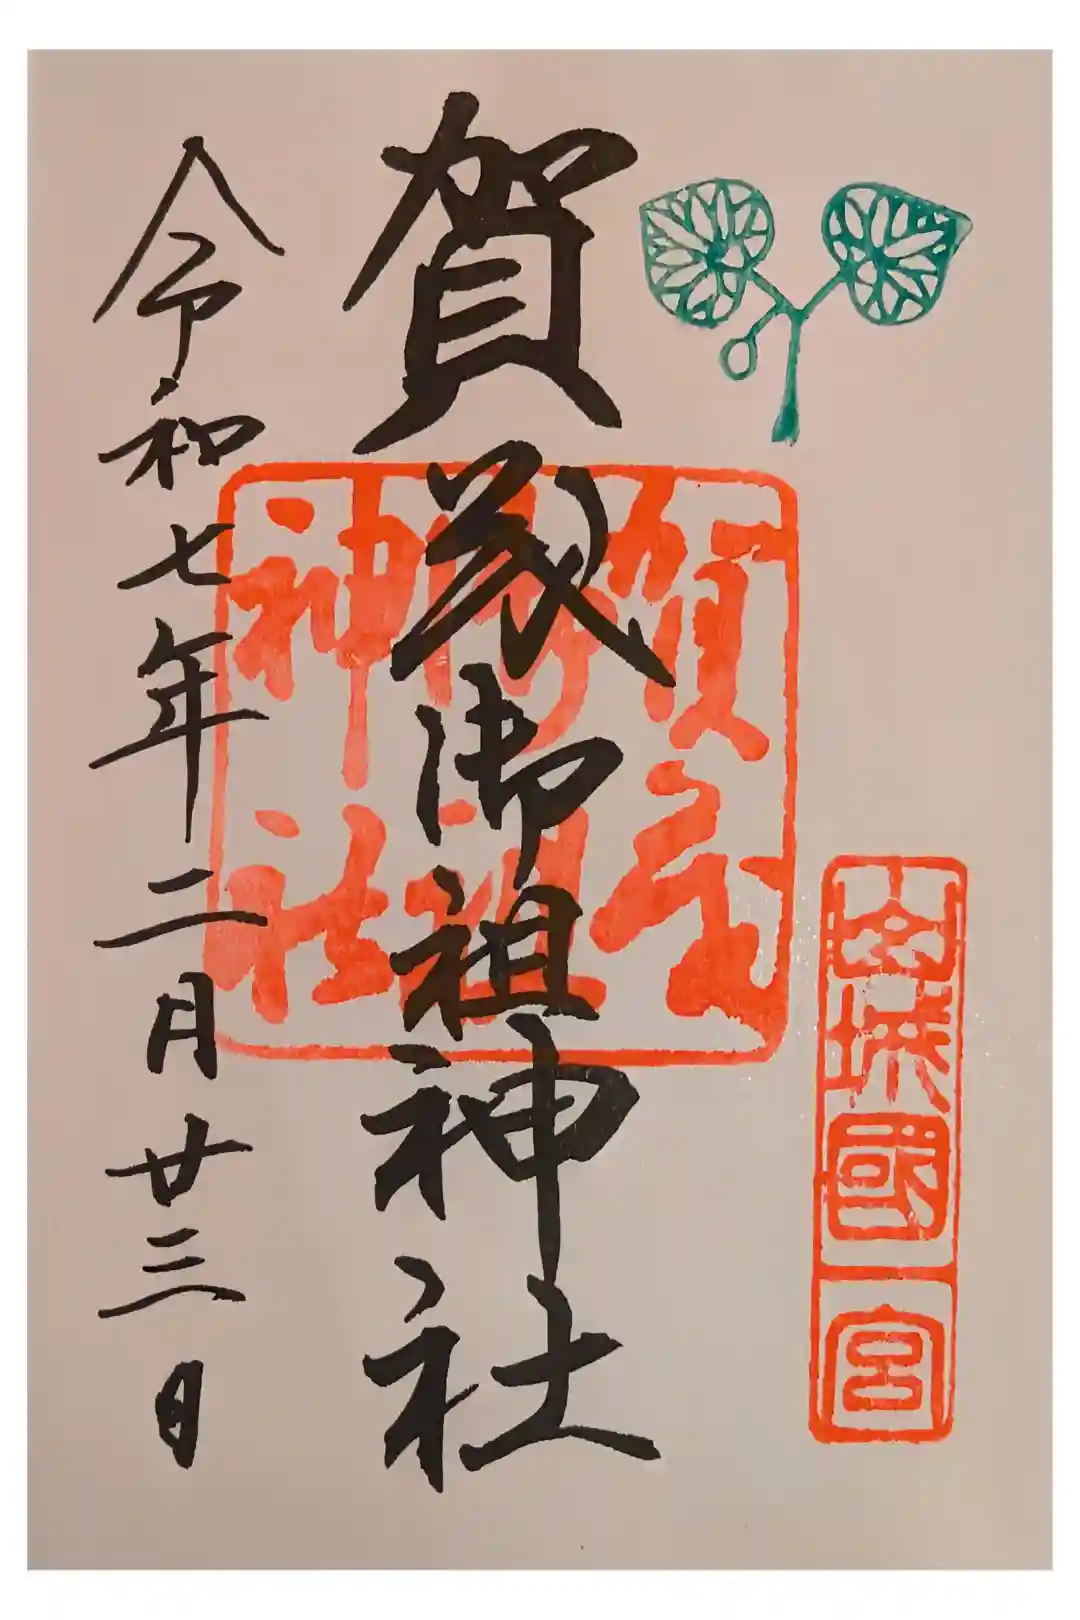 山城國一宮
賀茂御祖神社
賀茂御祖神社
令和七年二月廿三日